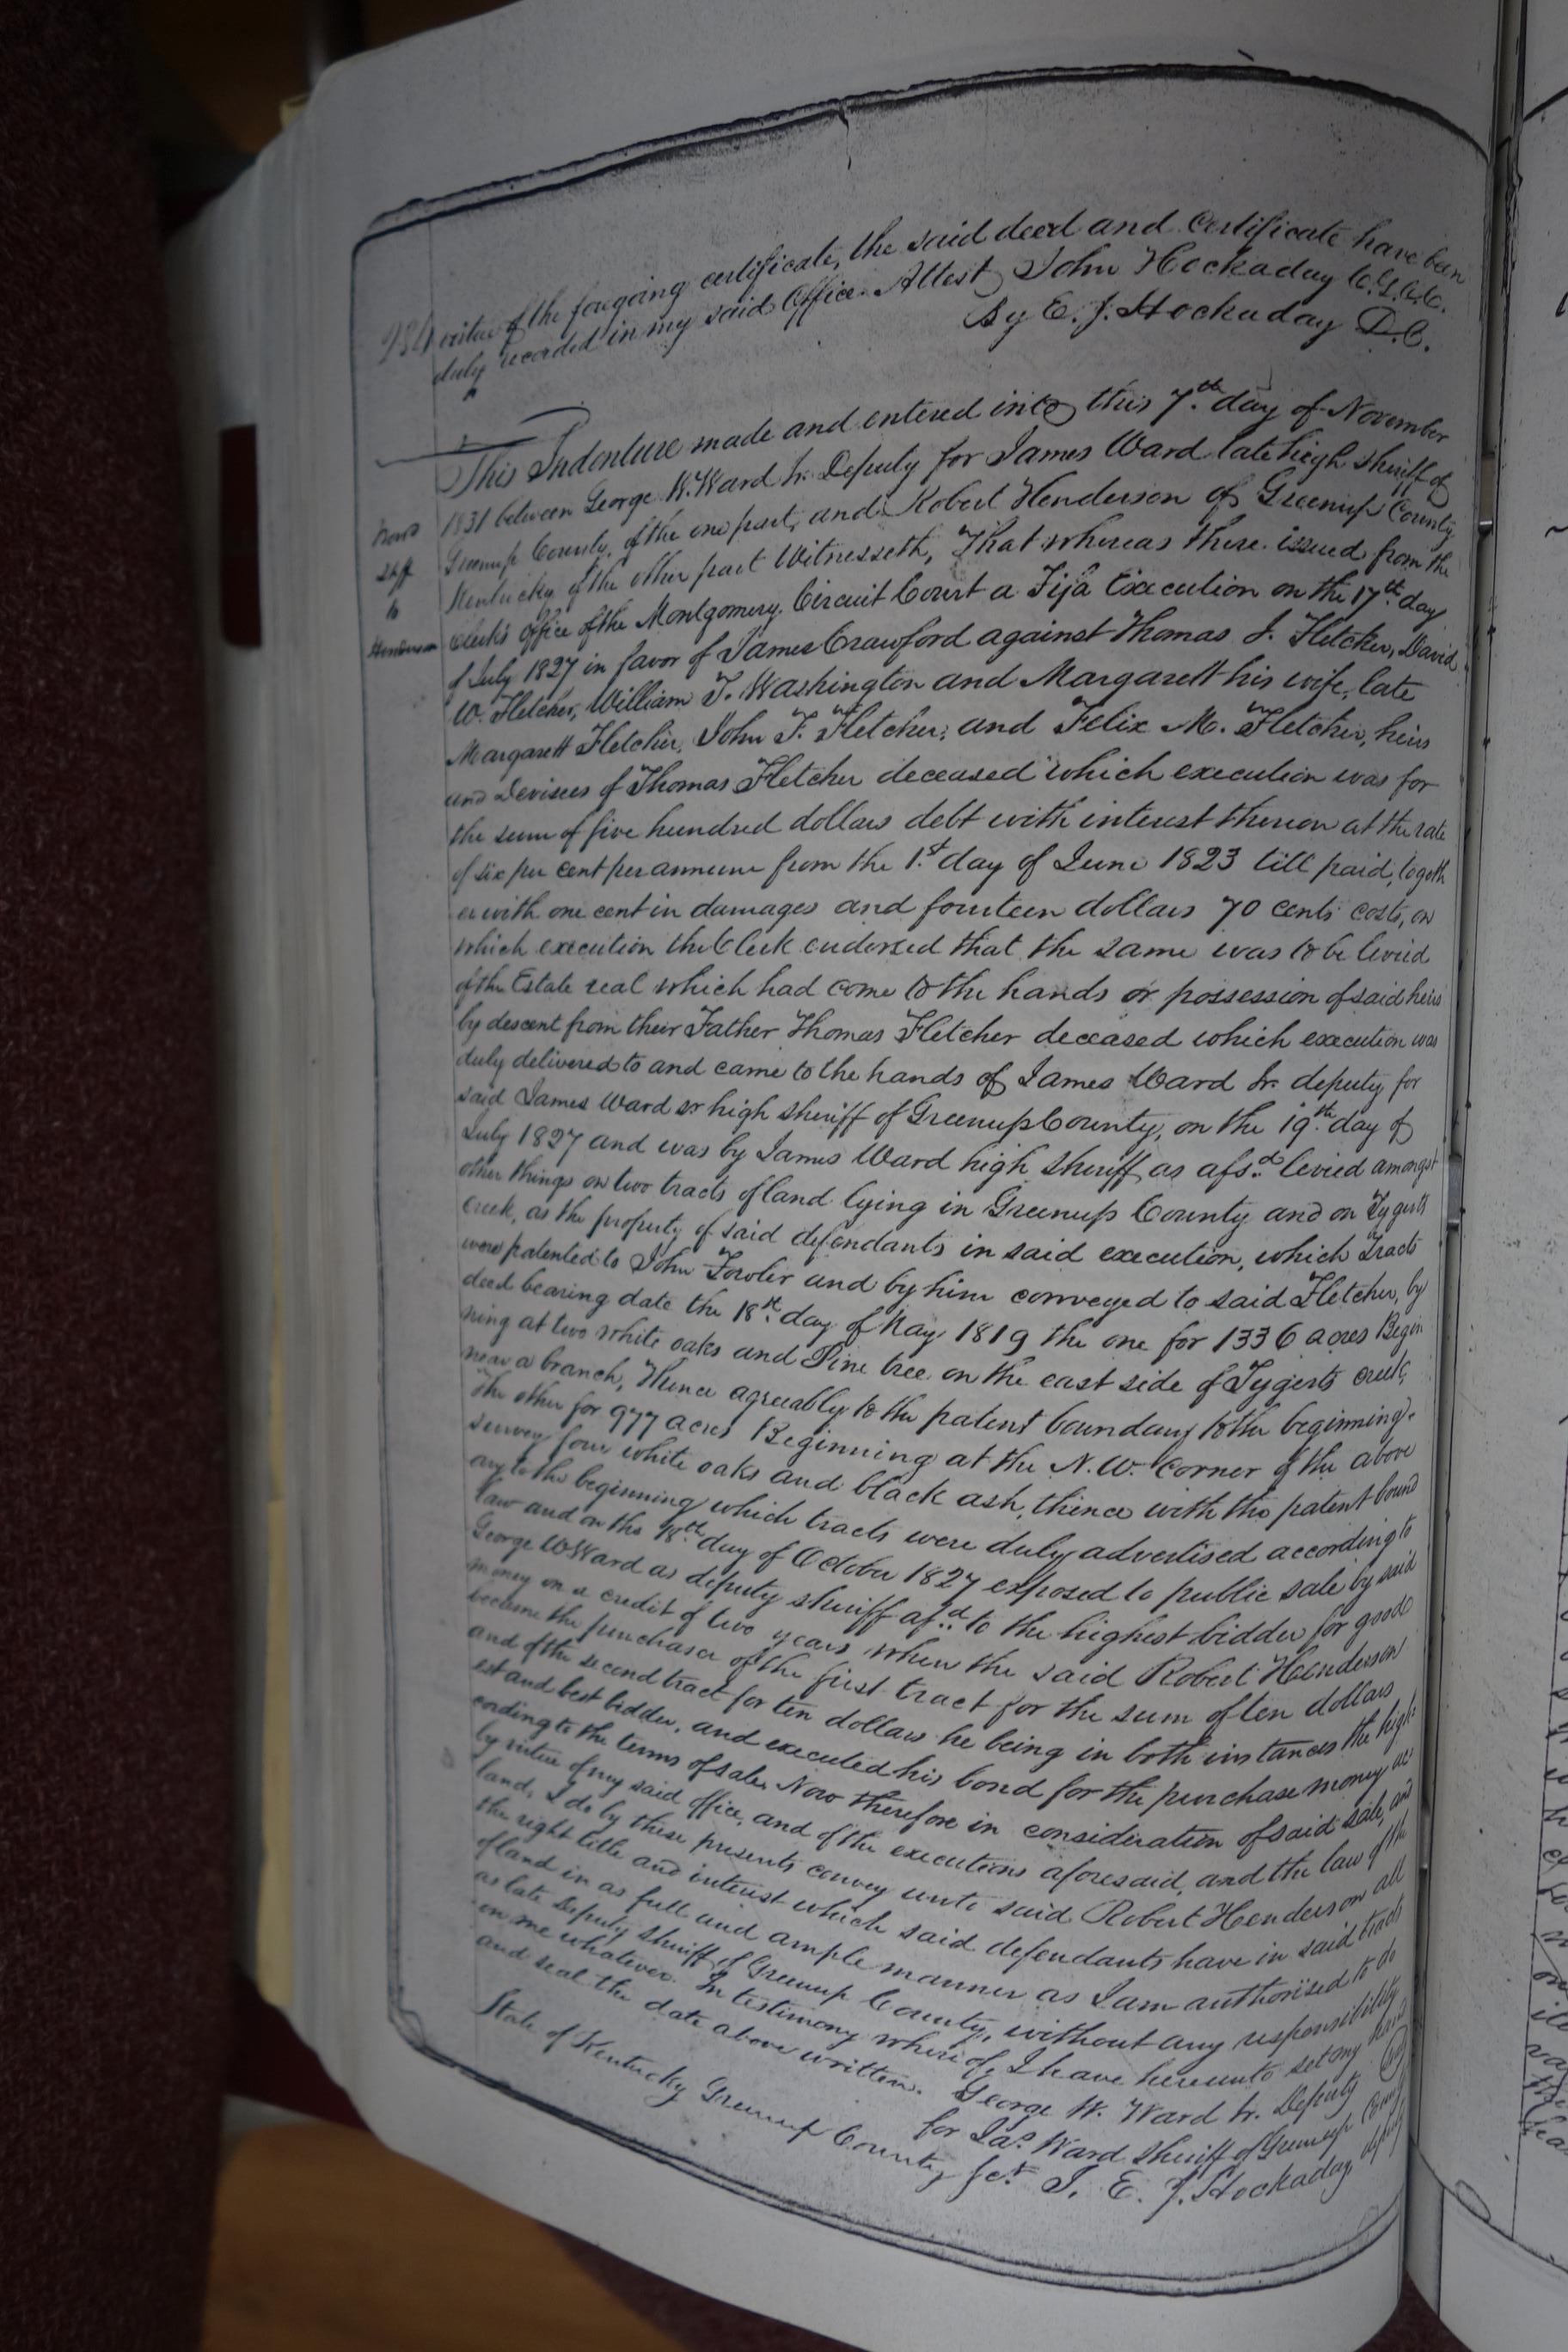 234 virtue of the foregoing certificate, the said deed and certificate have been
duly recorded in my said Office. Attest John Hockaday C.G.C.C.
By E. J. Hockaday D.C.
This Indenture made and entered into this 7th day of November
1831 between George W. Ward Jr. Deputy for James Ward late high sheriff of
Greenup County, of the one part, and Robert Henderson of Greenup County
Kentucky of the other part Witnesseth, That whereas there issued from the
Clerk's office of the Montgomery Circuit Court a Fifa Execution on the 17th day
of July 1827 in favor of James Crawford against Thomas J. Fletcher, David
W. Fletcher, William T. Washington and Margarett his wife, late
Margarett Fletcher, John F. Fletcher, and Felix M. Fletcher, heirs
and Devisees of Thomas Fletcher deceased which execution was for
the sum of five hundred dollars debt with interest thereon at the rate
of six per cent per annum from the 1st day of June 1823 till paid, togeth
er with one cent in damages and fourteen dollars 70 cents costs, on
which execution the Clerk endorsed that the same was to be levied
of the Estate real which had come to the hands or possession of said heirs
by descent from their Father Thomas Fletcher deceased which execution was
duly delivered to and came to the hands of James Ward Jr. deputy for
said James Ward sr high sheriff of Greenup County, on the 19th day of
July 1827 and was by James Ward high Sheriff as afsd levied amongst
other things on two tracts of land lying in Greenup County and on Tygerts
creek, as the property of said defendants in said execution, which Tracts
were patented to John Fowler and by him conveyed to said Fletcher, by
deed bearing date the 18th day of May 1819 the one for 1336 acres Begin
ning at two white oaks and Pine tree on the east side of Tygerts creek,
near a branch, Thence agreeably to the patent boundary to the beginning.
The other for 977 acres Beginning at the N.W. Corner of the above
survey four white oaks and black ash, thence with the patent bound
ary to the beginning which tracts were duly advertised according to
law and on the 18th day of October 1827 exposed to public sale by said
George W Ward as deputy sheriff afd to the highest bidder for good
money on a credit of two years when the said Robert Henderson
became the purchaser of the first tract for the sum of ten dollars
and of the second tract for ten dollars he being in both instances the high
est and best bidder, and executed his bond for the purchase money ac
cording to the terms of sale. Now therefore in consideration of said sale, and
by virtue of my said office, and of the executions aforesaid, and the law of the
land, I do by these presents convey unto said Robert Henderson all
the right title and interest which said defendants have in said tracts
of land in as full and ample manner as I am authorised to do
as late Deputy sheriff of Greenup County, without any responsibility
on me whatever. In testimony whereof, I have hereunto set my hand
and seal the date above written. George W. Ward Jr. Deputy
for Jas Ward Sheriff of Greenup County
State of Kentucky Greenup County Sct I, E. J. Hockaday, deputy
Ward
Shff
to
Henderson